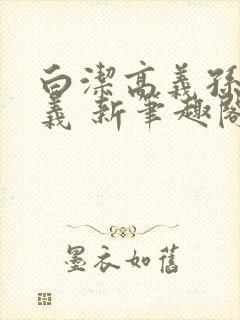 白潔高義孫
義 新筆趣閣
墨衣如舊